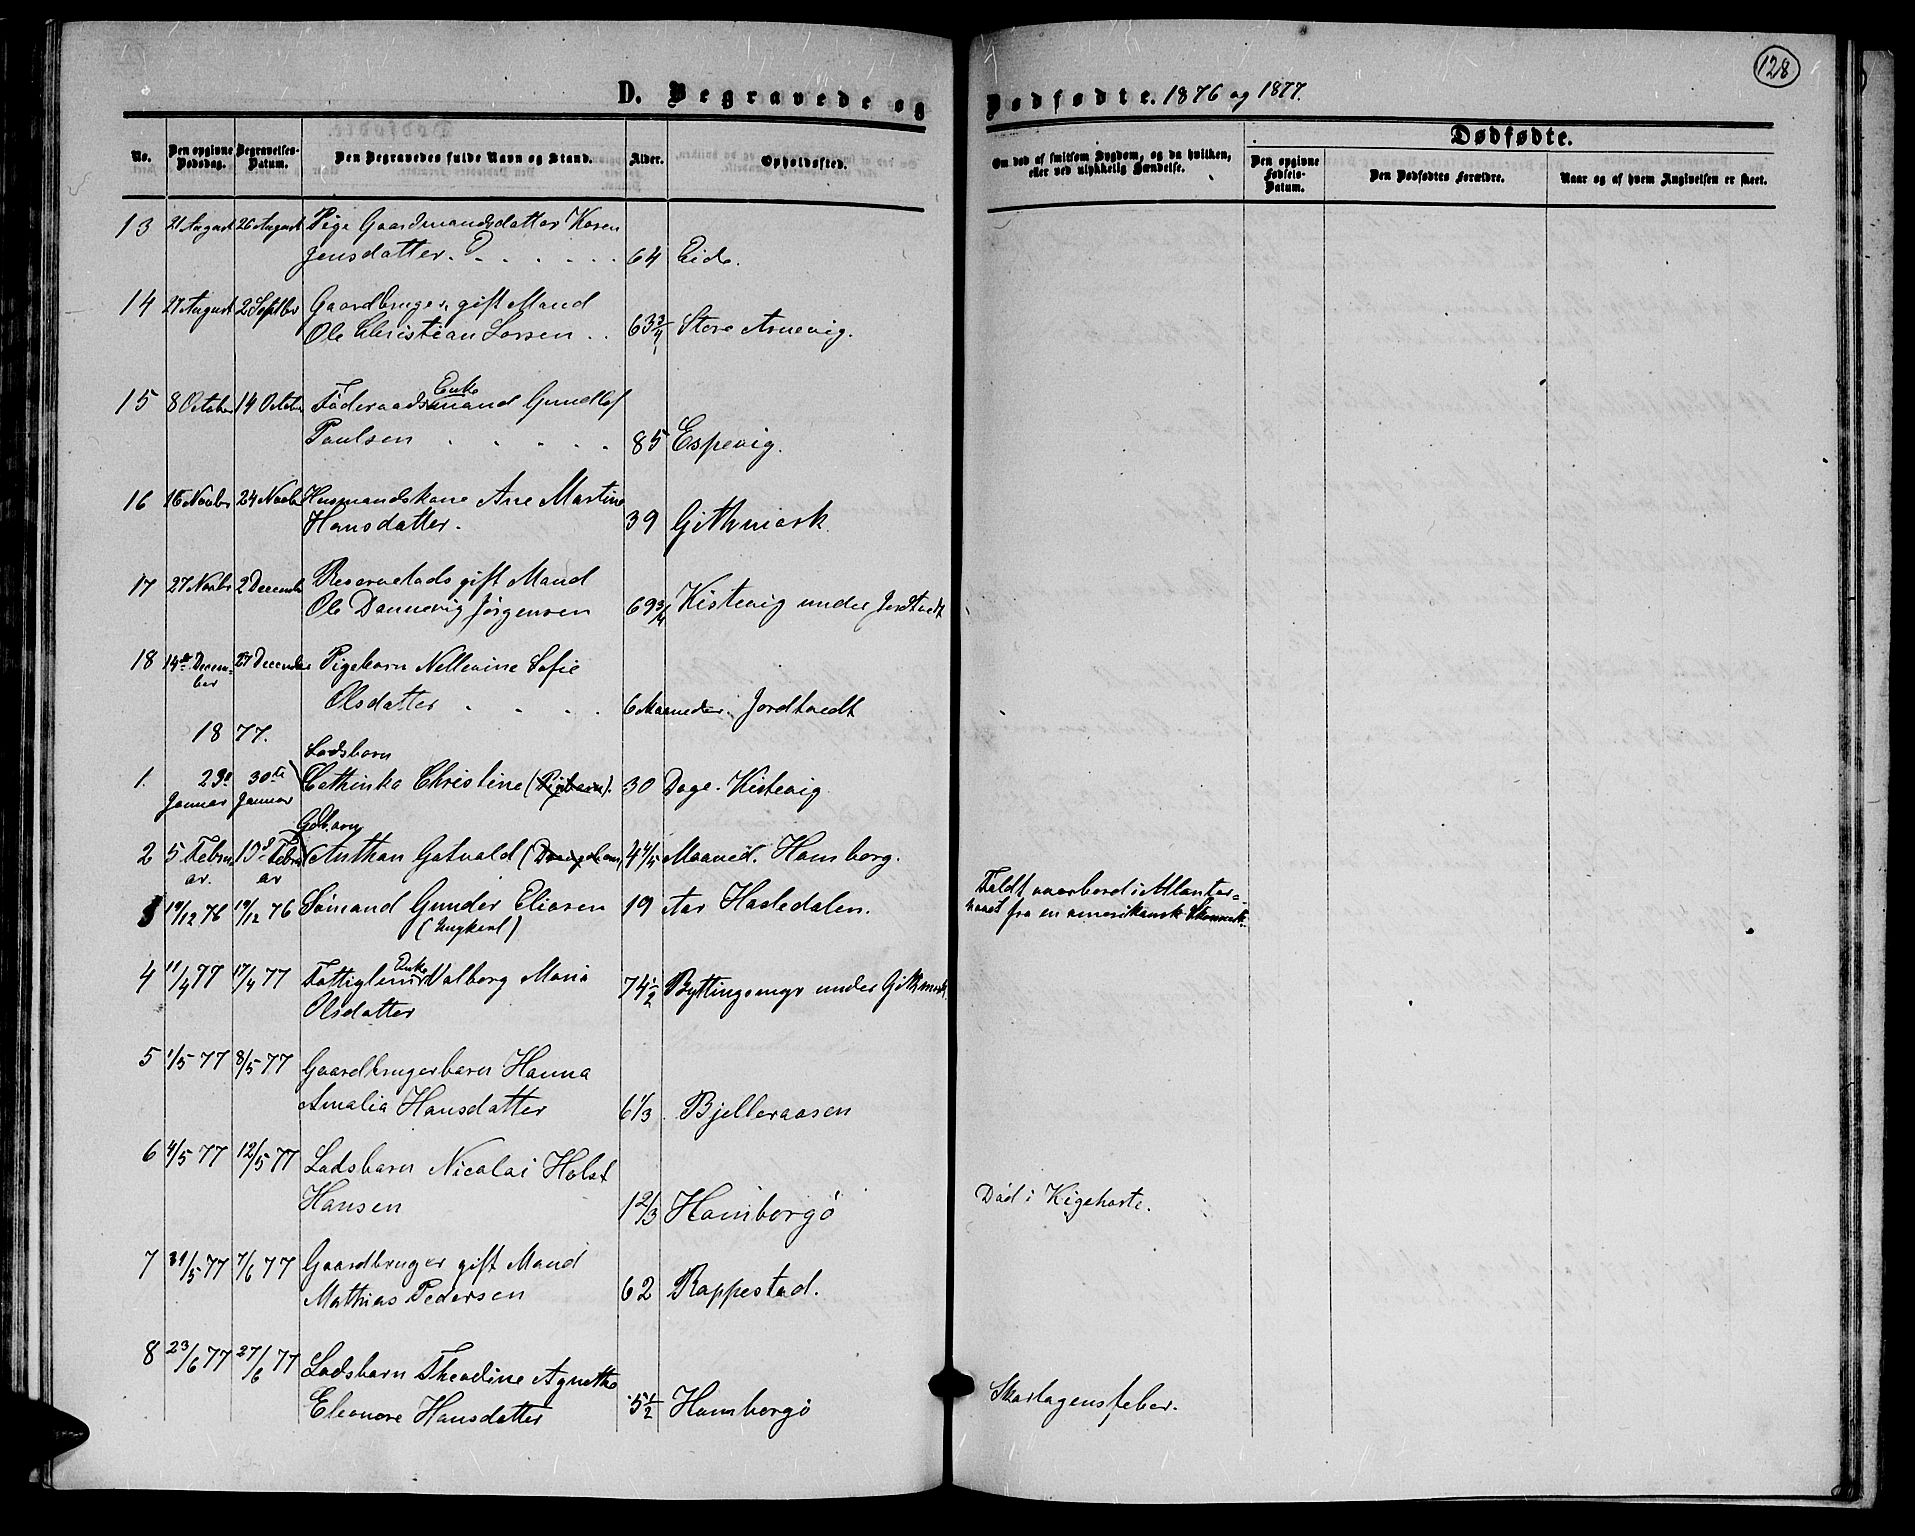 128
D. Begravede og Dødfødte. 1876 og 1877.
Dødfødte.
No.
Den opgivne Dødsdag.
Begravelses-Datum.
Den Begravedes fulde Navn og Stand.
Alder.
Opholdssted.
Om død af smitsom Sygdom, og da hvilken,
eller ved ulykkelig Hændelse.
Den opgivne Fødsels-Datum.
Den Dødfødtes Forældre.
Naar og af hvem Angivelsen er skeet.
13 21 August 26 August Pige Gaardmandsdatter Karen
Jensdatter. 64 Eide.
14 27 August 2 Septbr Gaardbruger, gift Mand
Ole Christian Larsen . . 63 3/4 Store Arnevig.
Enke
15 8 October 14 October Föderaadsmand Gundlef
Paulsen . . . . . 85 Espevig.
16 16 Novbr 24 Novbr Husmandskone Ane Martine
Hansdatter. 39 Githmark.
17 27 Novbr 2 December Reservelods gift Mand
Ole Dannevig Jörgensen 69 3/4 Kistevig under Jordtvedt
18 14de Decem- 27 December Pigebarn Nellevine Sofie
ber
Olsdatter . . . . 6 Maaneder. Jordtvedt
1877.
Lodsbarn
1. 23de 30te Cathinka Christine (Pigebarn). 30 Dage. Kistevig
Januar Januar
Gdb.barn
2 5 Febru 10de Febru Anthon Gotvald (Drengebarn) 4 4/5 Maaned. Hamborg.
ar. ar
3 19/12 76 19/12 76 Sömand Gunder Eliasen 19 Aar Hasledalen. Faldt overbord i Atlanter-
(Ungkarl) havet fra en amerikansk
Enke
4 11/4 77 17/4 77 Fattiglem Valborg Maria 74 1/2 Byttingsmyr under Githmark.
Olsdatter
5 1/5 77 8/5 77 Gaardbrugerbarn Hanna
Amalia Hansdatter 6 1/3 Bjelleraasen
6 4/5 77 12/5 77 Lodsbarn Nicolai Holst
Hansen 1 2/3 Hamborgö Död i Kigehoste.
7 31/5 77 7/6 77 Gaardbruger gift Mand
Mathias Pedersen 62 Rappestad.
8 23/6 77 27/6 77 Lodsbarn Theodine Agnetha
Eleonore Hansdatter 5 1/2 Hamborgö Skarlagensfeber.